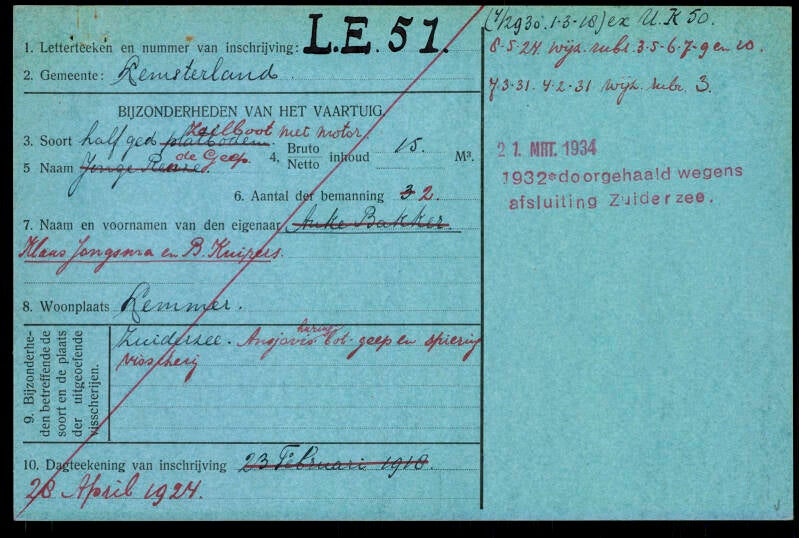 1. Letterteeken en nummer van inschrijving: L.E. 51.
2. Gemeente: Lemsterland
BIJZONDERHEDEN VAN HET VAARTUIG.
Zeilboot met motor.
3. Soort half ged. platbodem.
de Geep.
4. Bruto Netto inhoud 15 M³.
5 Naam Jonge
6. Aantal der bemanning 3 2.
7. Naam en voornamen van den eigenaar Anke Bakker.
Klaas Jongsma en B. Kuipers.
8. Woonplaats Lemmer.
9. Bijzonderhe-
den betreffende de
soort en de plaats
der uitgeoefende
visscherijen.
haring
Zuiderzee. Ansjovis bot- geep en spiering
visscherij
10. Dagteekening van inschrijving 23 Februari 1918.
28 April 1924.
(4/2930. 1-3-18) ex U.K 50.
8-5-24. wijz. rubr. 3-5-6-7-9 en 10.
7-3-31. 4-2-31 wijz. rubr. 3.
21. MRT. 1934
1932 doorgehaald wegens
afsluiting Zuiderzee.